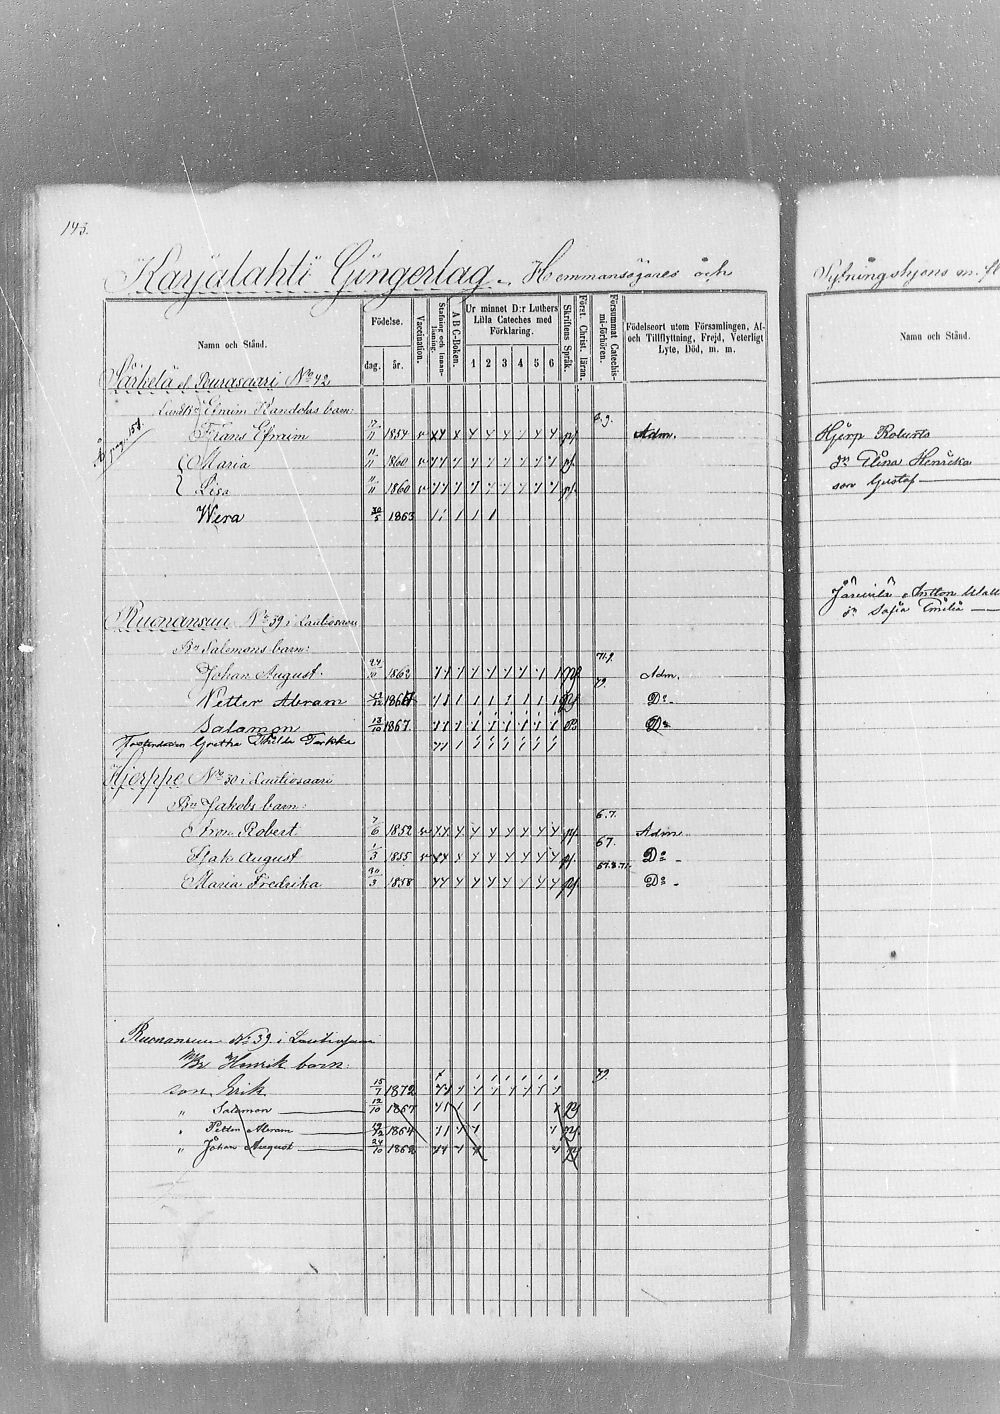 143.
Karjalahti Gingerlag. Hemmansägares och
Namn och Stånd.
Födelse.
dag.
år.
Vaccination.
Stafning och Innanläsning.
A B C-Boken.
Ur minnet D:r Luthers Lilla Cateches med Förklaring.
1 2 3 4 5 6
Skriftens Språk.
Först. Christ. läran.
Försummat Catechismi-förhören.
Födelseort utom Församlingen, Af- och Tillflyttning, Frejd, Veterligt Lyte, Död, m. m.
Särkelä el Peurasaari No 42
Efraim Kandolas barn:
Frans Efraim 17/11 1854 Adm.
Maria 11/11 1860
Lisa 11/11 1860
Wera 30/5 1863
Ruonansuu No 39 i Lautiosaari
Bn Salomons barn:
Johan August 24/10 1862 Adm.
Petter Abram 19/12 1864 Do
Salamon 13/10 1867 Do
Gretha Thilda Tarkka
Hjerppe No 30 i Lautiosaari
Bn Jakobs barn:
Robert 7/6 1852 67. Adm.
Isak August 1/3 1855 67. Do
Maria Fredrika 30/3 1858 Do
Ruonansuu No 39 i Lautiosaari
Henrik barn:
son Erik 15/7 1872 79.
" Salamon 12/10 1867
" Petter Abram 19/12 1864
" Johan August 24/10 1862
Sytningshjons m. fl
Namn och Stånd.
Hjerp Roberts
dr Elina Henrika
son Gustaf
Anton
dr Sofia Emilia